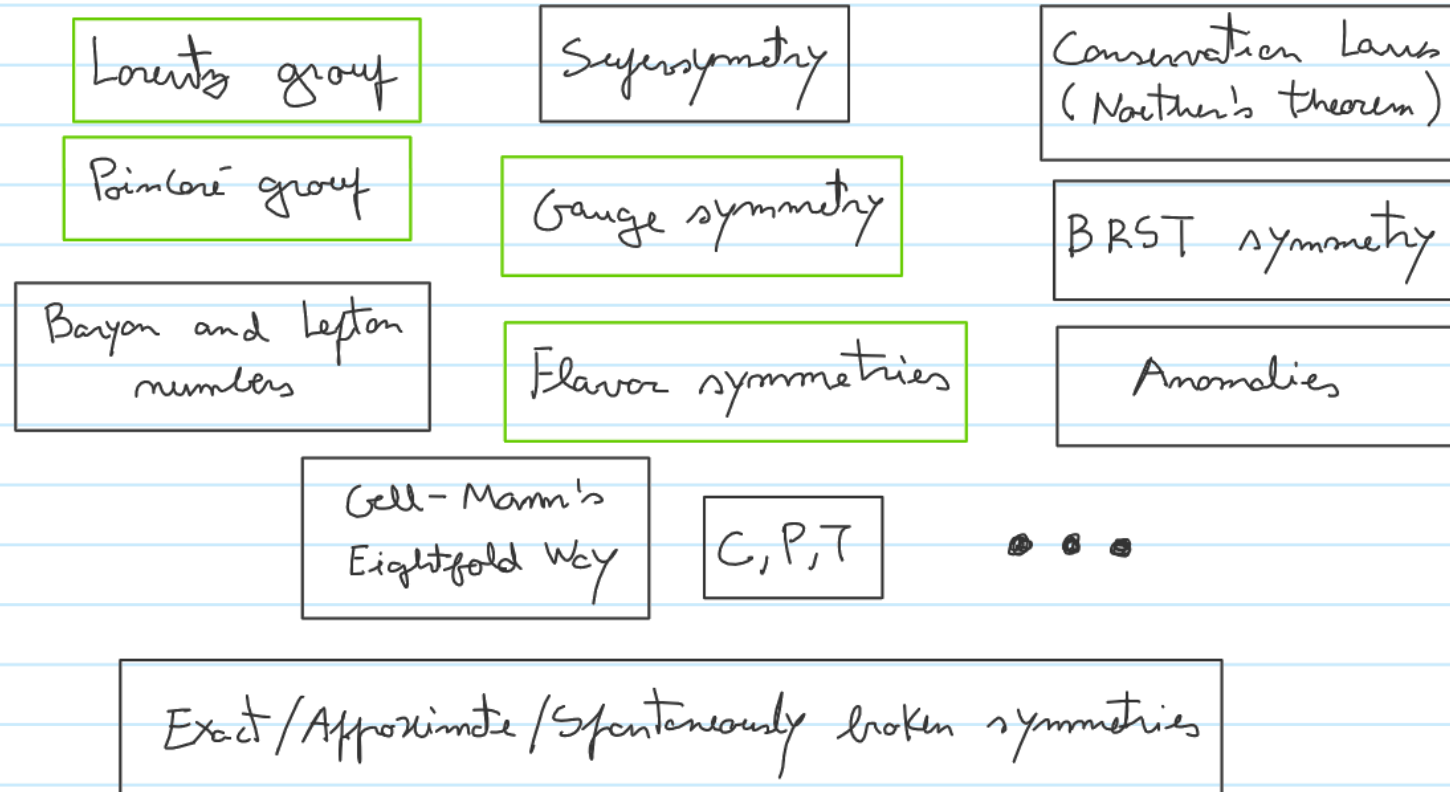 Lorentz group
Supersymetry
Conservation Laws
(Noether's theorem)
Poincaré group
Gauge symmetry
BRST symmetry
Baryon and Lepton
numbers
Flavor symmetries
Anomalies
Gell-Mann's
Eightfold Way
C, P, T
Exact/Approximate/Spontaneously broken symmetries